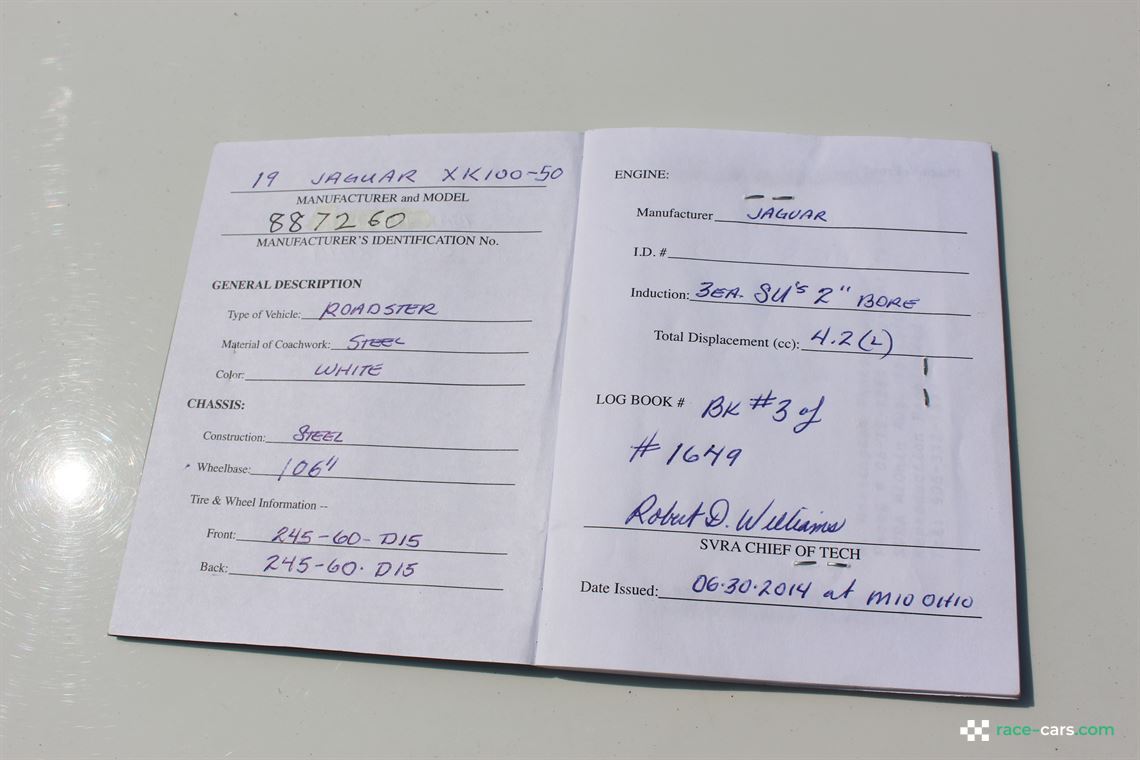 19 JAGUAR XK100-50
MANUFACTURER and MODEL
887260
MANUFACTURER'S IDENTIFICATION No.
GENERAL DESCRIPTION
Type of Vehicle: ROADSTER
Material of Coachwork: STEEL
Color: WHITE
CHASSIS:
Construction: STEEL
Wheelbase: 106"
Tire & Wheel Information --
Front: 245-60-D15
Back: 245-60-D15
ENGINE:
Manufacturer JAGUAR
I.D. #
Induction: 3EA. SU's 2" BORE
Total Displacement (cc): 4.2 (L)
LOG BOOK # BK #3 of
#1649
Robert D. Williams
SVRA CHIEF OF TECH
Date Issued: 06.30.2014 at MID OHIO
race-cars.com